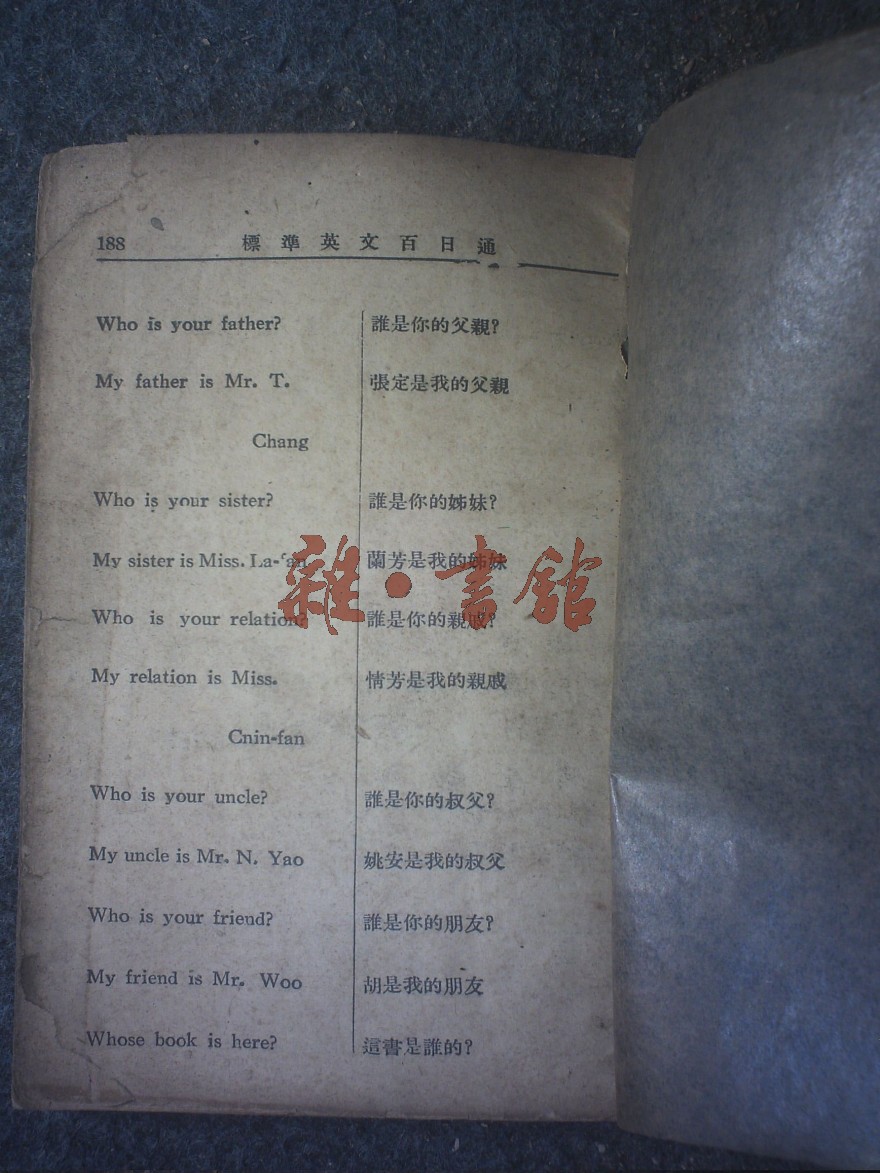 188 標準英文百日通
Who is your father? 誰是你的父親?
My father is Mr. T. 張定是我的父親
Chang
Who is your sister? 誰是你的姊妹?
My sister is Miss. La-fan 蘭芳是我的姊妹
Who is your relation? 誰是你的親戚?
My relation is Miss. 情芳是我的親戚
Cnin-fan
Who is your uncle? 誰是你的叔父?
My uncle is Mr. N. Yao 姚安是我的叔父
Who is your friend? 誰是你的朋友?
My friend is Mr. Woo 胡是我的朋友
Whose book is here? 這書是誰的?
雜·書館